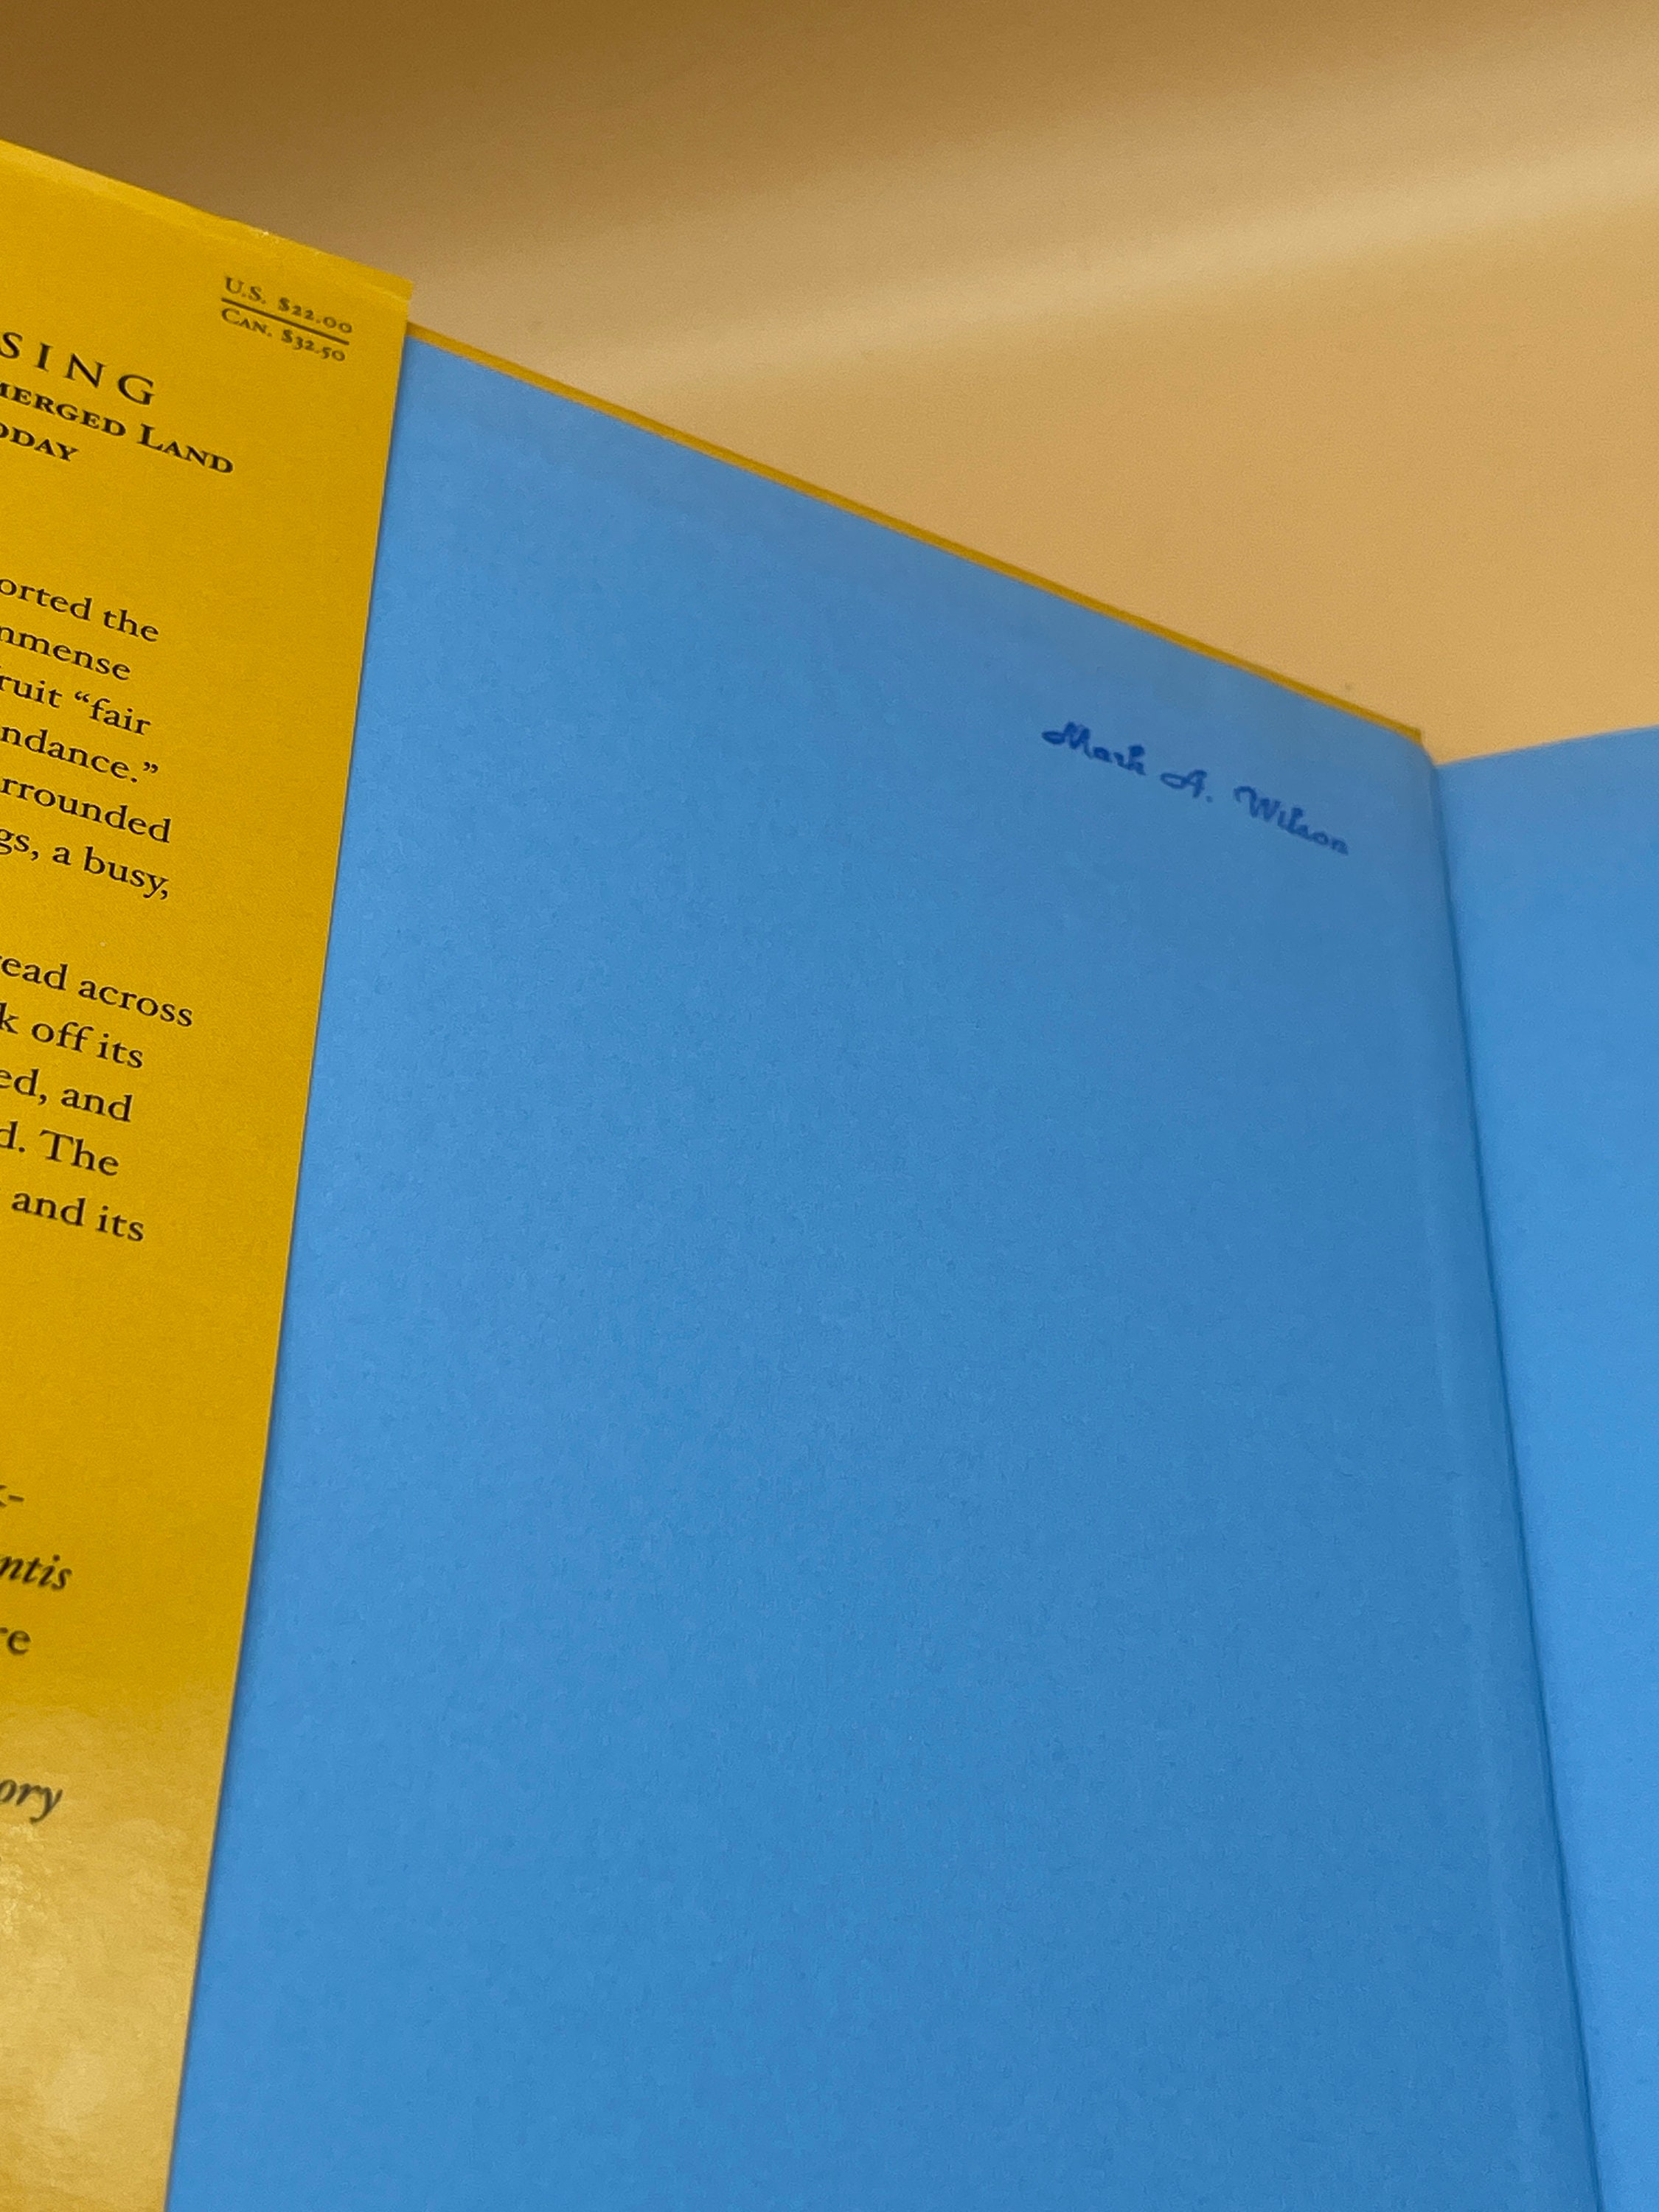 U.S. $22.00
CAN. $32.50
SING
MERGED LAND
ODAY
orted the
mmense
ruit “fair
ndance.”
rrounded
gs, a busy,
read across
k off its
ed, and
d. The
and its
-
ntis
re
ory
Mark A. Wilson